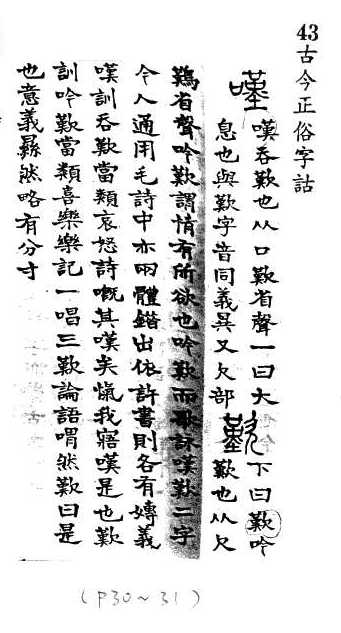 43
古今正俗字詁
嘆
嘆吞歎也从口歎省聲一曰大
息也與歎字音同義異又欠部
歎
下曰歎吟
歎也从欠
鷬省聲吟歎謂情有所欲也吟歎而歌詠嘆歎二字
今人通用毛詩中亦兩體錯出依許書則各有嫥義
嘆訓吞歎當類哀怒詩嘅其嘆矣愾我寤嘆是也歎
訓吟歎當類喜樂樂記一唱三歎論語喟然歎曰是
也意義㬎然略有分寸
(P30~31)